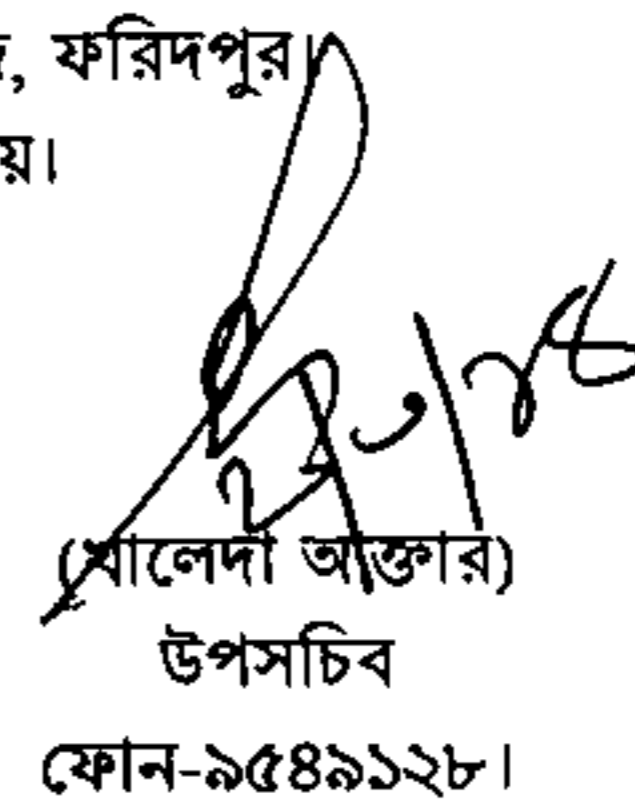 ফরিদপুর।
য়।
(খালেদা আক্তার)
উপসচিব
ফোন-৯৫৪৯১২৮।